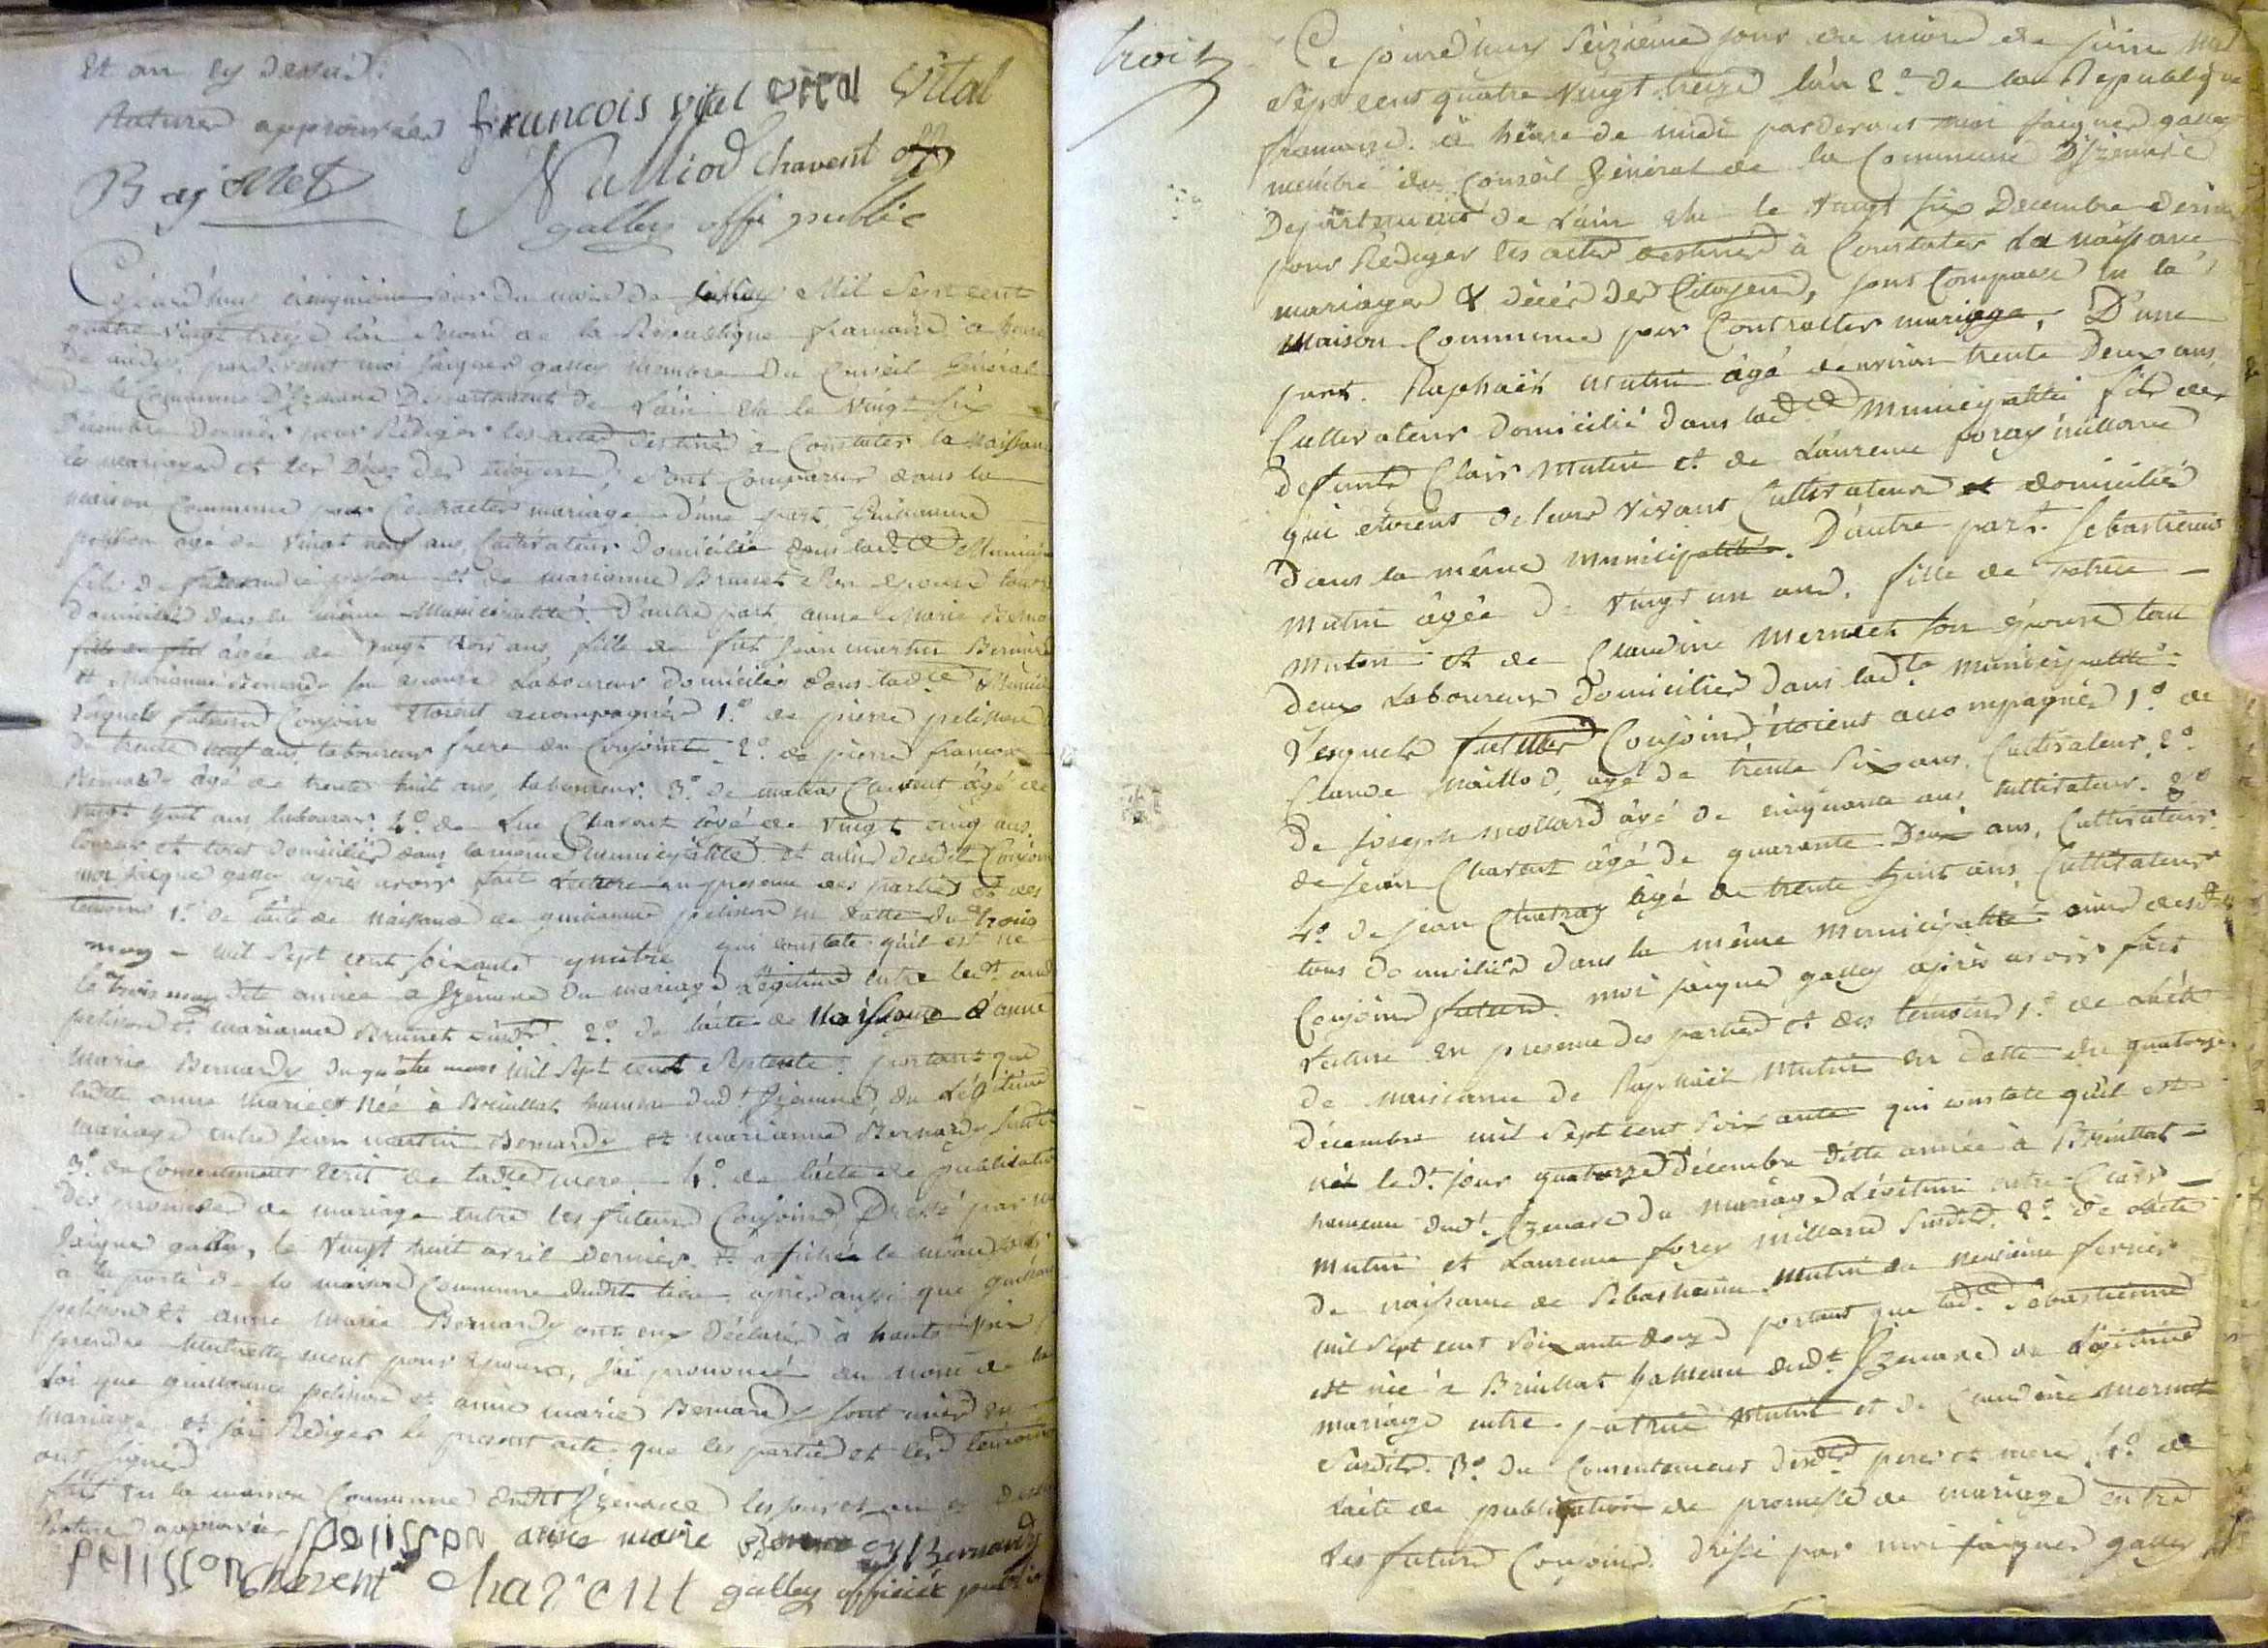 Et an cy dessus.
Ratures approuvées françois vital vital vital
Bajollet Nalliod Chavent off
galley offi public
Cejourd'huy cinquieme jour du mois de Mil Sept cent
quatre vingt treize l'an Second de la République francaise a heure
de midy, pardevant moi jaques galley Membre Du Conseil Général
de la Commune D'Izenave Departement de L'ain élu le Vingt Six
Décembre Dernier pour Rédiger les actes destinés a Constater la Naissance
les mariages et les Décès des citoyens, Sont Comparus dans la
maison Commune pour Contracter mariage. D'une part Guillaume
pelisson âgé de vingt neuf ans, Cultivateur Domicilié dans lad.te Municip
fils de pelisson et de marianne Brunet Son epouse tous
domiciliés dans la même Municipalité. D'autre part anne Marie Berna
âgée de vingt trois ans, fille de fut Jean martin Bernard
et Marianne Bernardy Son epouse Laboureur domiciliés dans ladte Munici
Lesquels futurs Conjoins étoient accompagnés 1.º de pierre pelisson
de trente neuf ans, laboureur frere du Conjoint. 2.º de pierre francois
Bernardy âgé de trente huit ans, laboureur. 3.º de matias Charvent âgé de
vingt huit ans laboureur. 4.º de Luc Charvent âgé de Vingt cinq ans.
et tous domiciliés dans la même Municipalité. et amis desdit Conjoins
moi jaques galley après avoir fait Lecture en presence des parties et des
témoins 1.º de l'acte de Naissance de guillaume pelisson en datte du trois
may - mil Sept cent soixante quatre qui constate qu'il est né
le trois may dite année a Izenave Du mariage Légitime entre led.t
pelisson et marianne Brunet Susd. 2.º de l'acte de Naissance d'anne
marie Bernardy du quatre mars mil Sept cent Septente. portant que
ladte anne Marie est Née à Brinllat hameau dud.t Izenave, du Légitime
mariage entre Jean martin Bernardy et marianne Bernardy Susdits
3.º du Consentement écrit de ladte mere - 4.º de l'acte de publication
Des promesses de mariage entre les futurs Conjoins Dressé par moi
Jaques galley, le Vingt huit avril Dernier. et affichée le même jour
à la porte de la maison Commune dudit lieu. après aussi que guillaume
pelisson et anne Marie Bernardy ont eu Déclarés à haute Voix,
prendre mutuellement pour Epoux, J'ai prononcé au nom de la
Loi que guillaume pelisson et anne marie Bernardy Sont unis en
mariage et j'ai Rédiger le present acte que les parties et les témoins
ont Signés
fait en la maison Commune dudit Izenave les jour et an cy dessus
Rature approuvée. pelisson anne marie Bernardy
pelisson Cherent Charent galley officier public
trois
Ce jourd'huy Seizieme jour du mois de juin Mil
Sept cent quatre Vingt treize l'an 2.º de la Republique
francaise. a heure de midi pardevant moi jaques galley
membre du Conseil Général de la Commune D'Izenave
Departement de L'ain élu le Vingt Six Decembre dernier
pour Rédiger les actes destinés à Constater la naissance
mariages & décès Des Citoyens, Sont Comparus en la
Maison Commune pour Contracter mariage. D'une
part. Raphaël mutin âgé d'environ trente Deux ans,
Cultivateur domicilié dans lad.te Municipalité fils de
defunts Clair mutin et de Laurence foray millard
qui étoient de leurs vivans Cultivateurs et domiciliés
dans la même Municipalité. D'autre part. Sebastienne
Mutin âgée De Vingt un ans, fille de patrice -
Mutin et de Claudine mernet Son épouse tous
deux Laboureurs Domiciliés dans lad.te municipalité
Lesquels futurs Conjoins étoient accompagnés 1.º de
Claude Naillod, agé de trente Six ans, Cultivateur. 2.º
De joseph mollard âgé de cinquante ans, Cultivateur. 3.º
de jean Charent âgé de quarante Deux ans, Cultivateur.
4.º de jean Chatray âgé de trente huit ans, Cultivateur
tous domiciliés dans la même Municipalité amis desd.ts
Conjoins futurs. moi jaques galley après avoir fait
Lecture en presence des parties et des témoins 1.º de L'acte
de naissance de Raphaël Mutin en datte du quatorze
décembre mil Sept cent Soixante qui constate qu'il est
né led.t jour quatorze Décembre Ditte année à Brinllat -
hameau dud.t Izenave Du mariage Légitime entre Clair -
mutin et Laurence forey millard Susdits. 2.º De L'acte
De naissance de Sebastienne Mutin du neuvieme fevrier
mil Sept cent Soixante douze portant que lad.te Sebastienne
est née à Brinllat hameau dud.t Izenave du Légitime
mariage entre patrice Mutin et de Claudine Mernet
Susdits. 3.º Du Consentement desd.ts pere et mere. 4.º de
L'acte de publication de promesse de mariage entre
Les futurs Conjoins. dressé par moi jaques galley